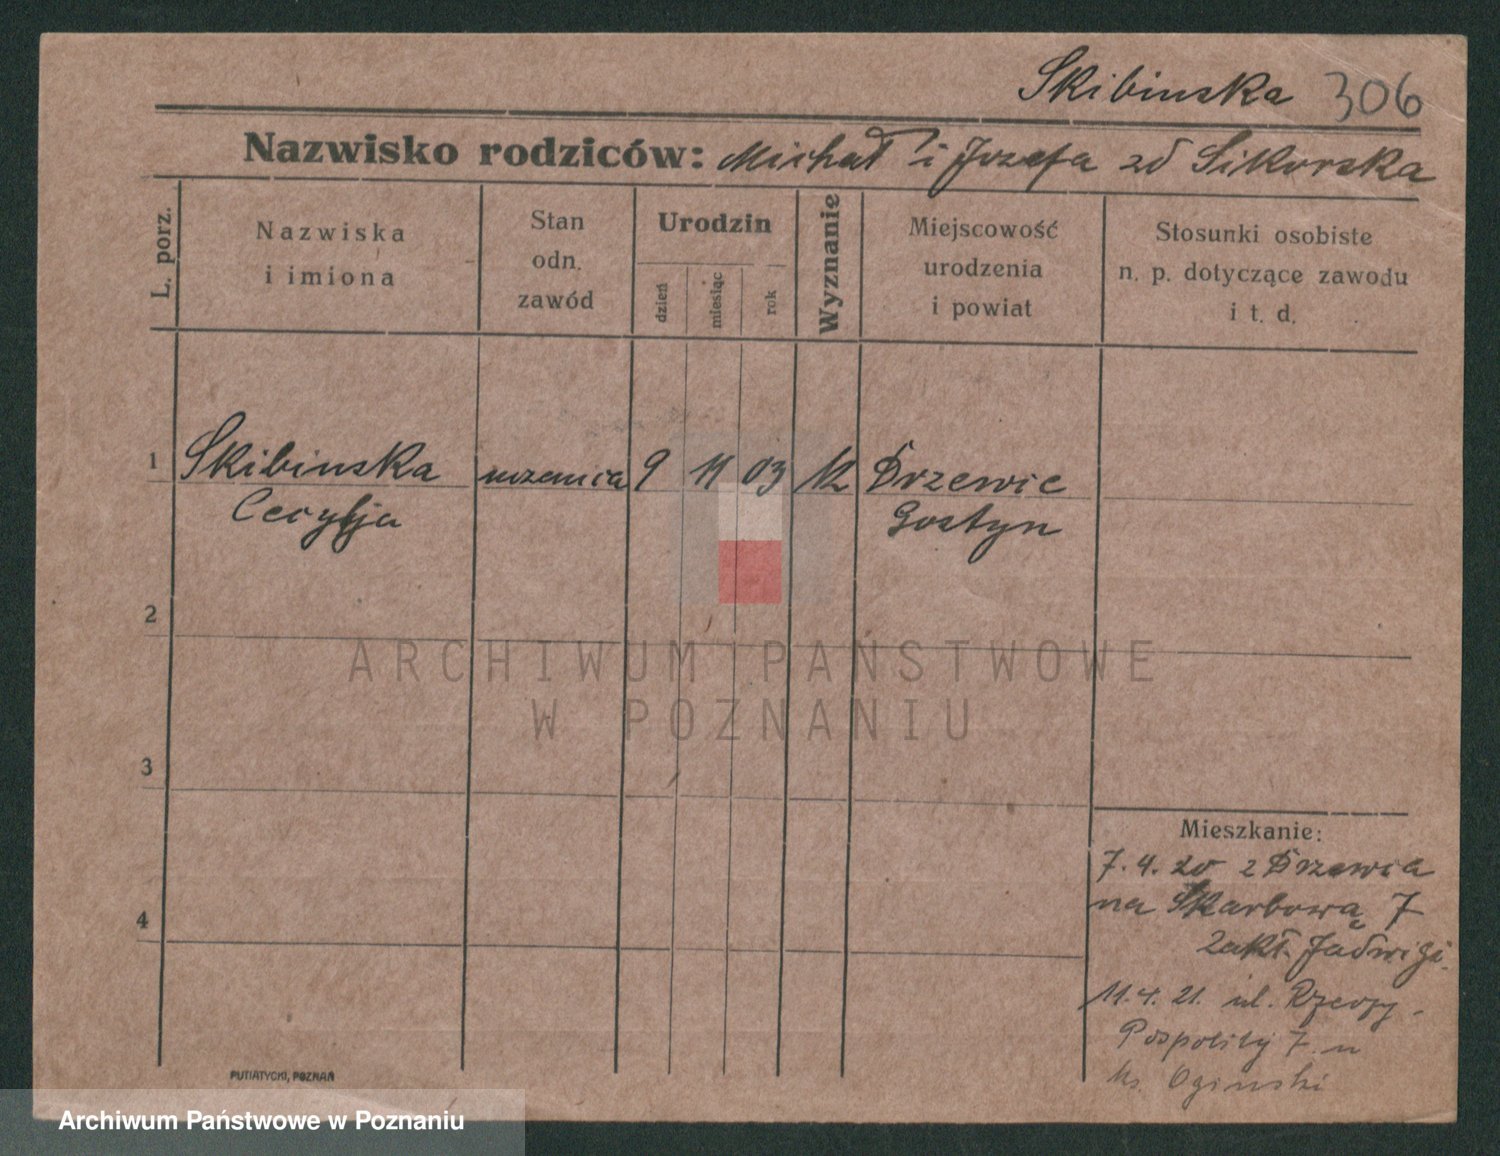 Skibinska 306
Nazwisko rodziców: Michał i Jozefa zd Sikorska
L. porz.
Nazwiska
i imiona
Stan
odn.
zawód
Urodzin
dzień
miesiąc
rok
Wyznanie
Miejscowość
urodzenia
i powiat
Stosunki osobiste
n. p. dotyczące zawodu
i t. d.
1 Skibinska uczenica 9 11 03 Drzewce
Cecylja Gostyn
2
3
4
Mieszkanie:
7.4.20 z Drzewca
na Skarbową 7
Zakł. Jadwigi.
11.4.21. ul. Rzeczy-
Pospolitej 7. u
Ks. Oginski
PUTIATYCKI, POZNAŃ
ARCHIWUM PAŃSTWOWE
W POZNANIU
Archiwum Państwowe w Poznaniu